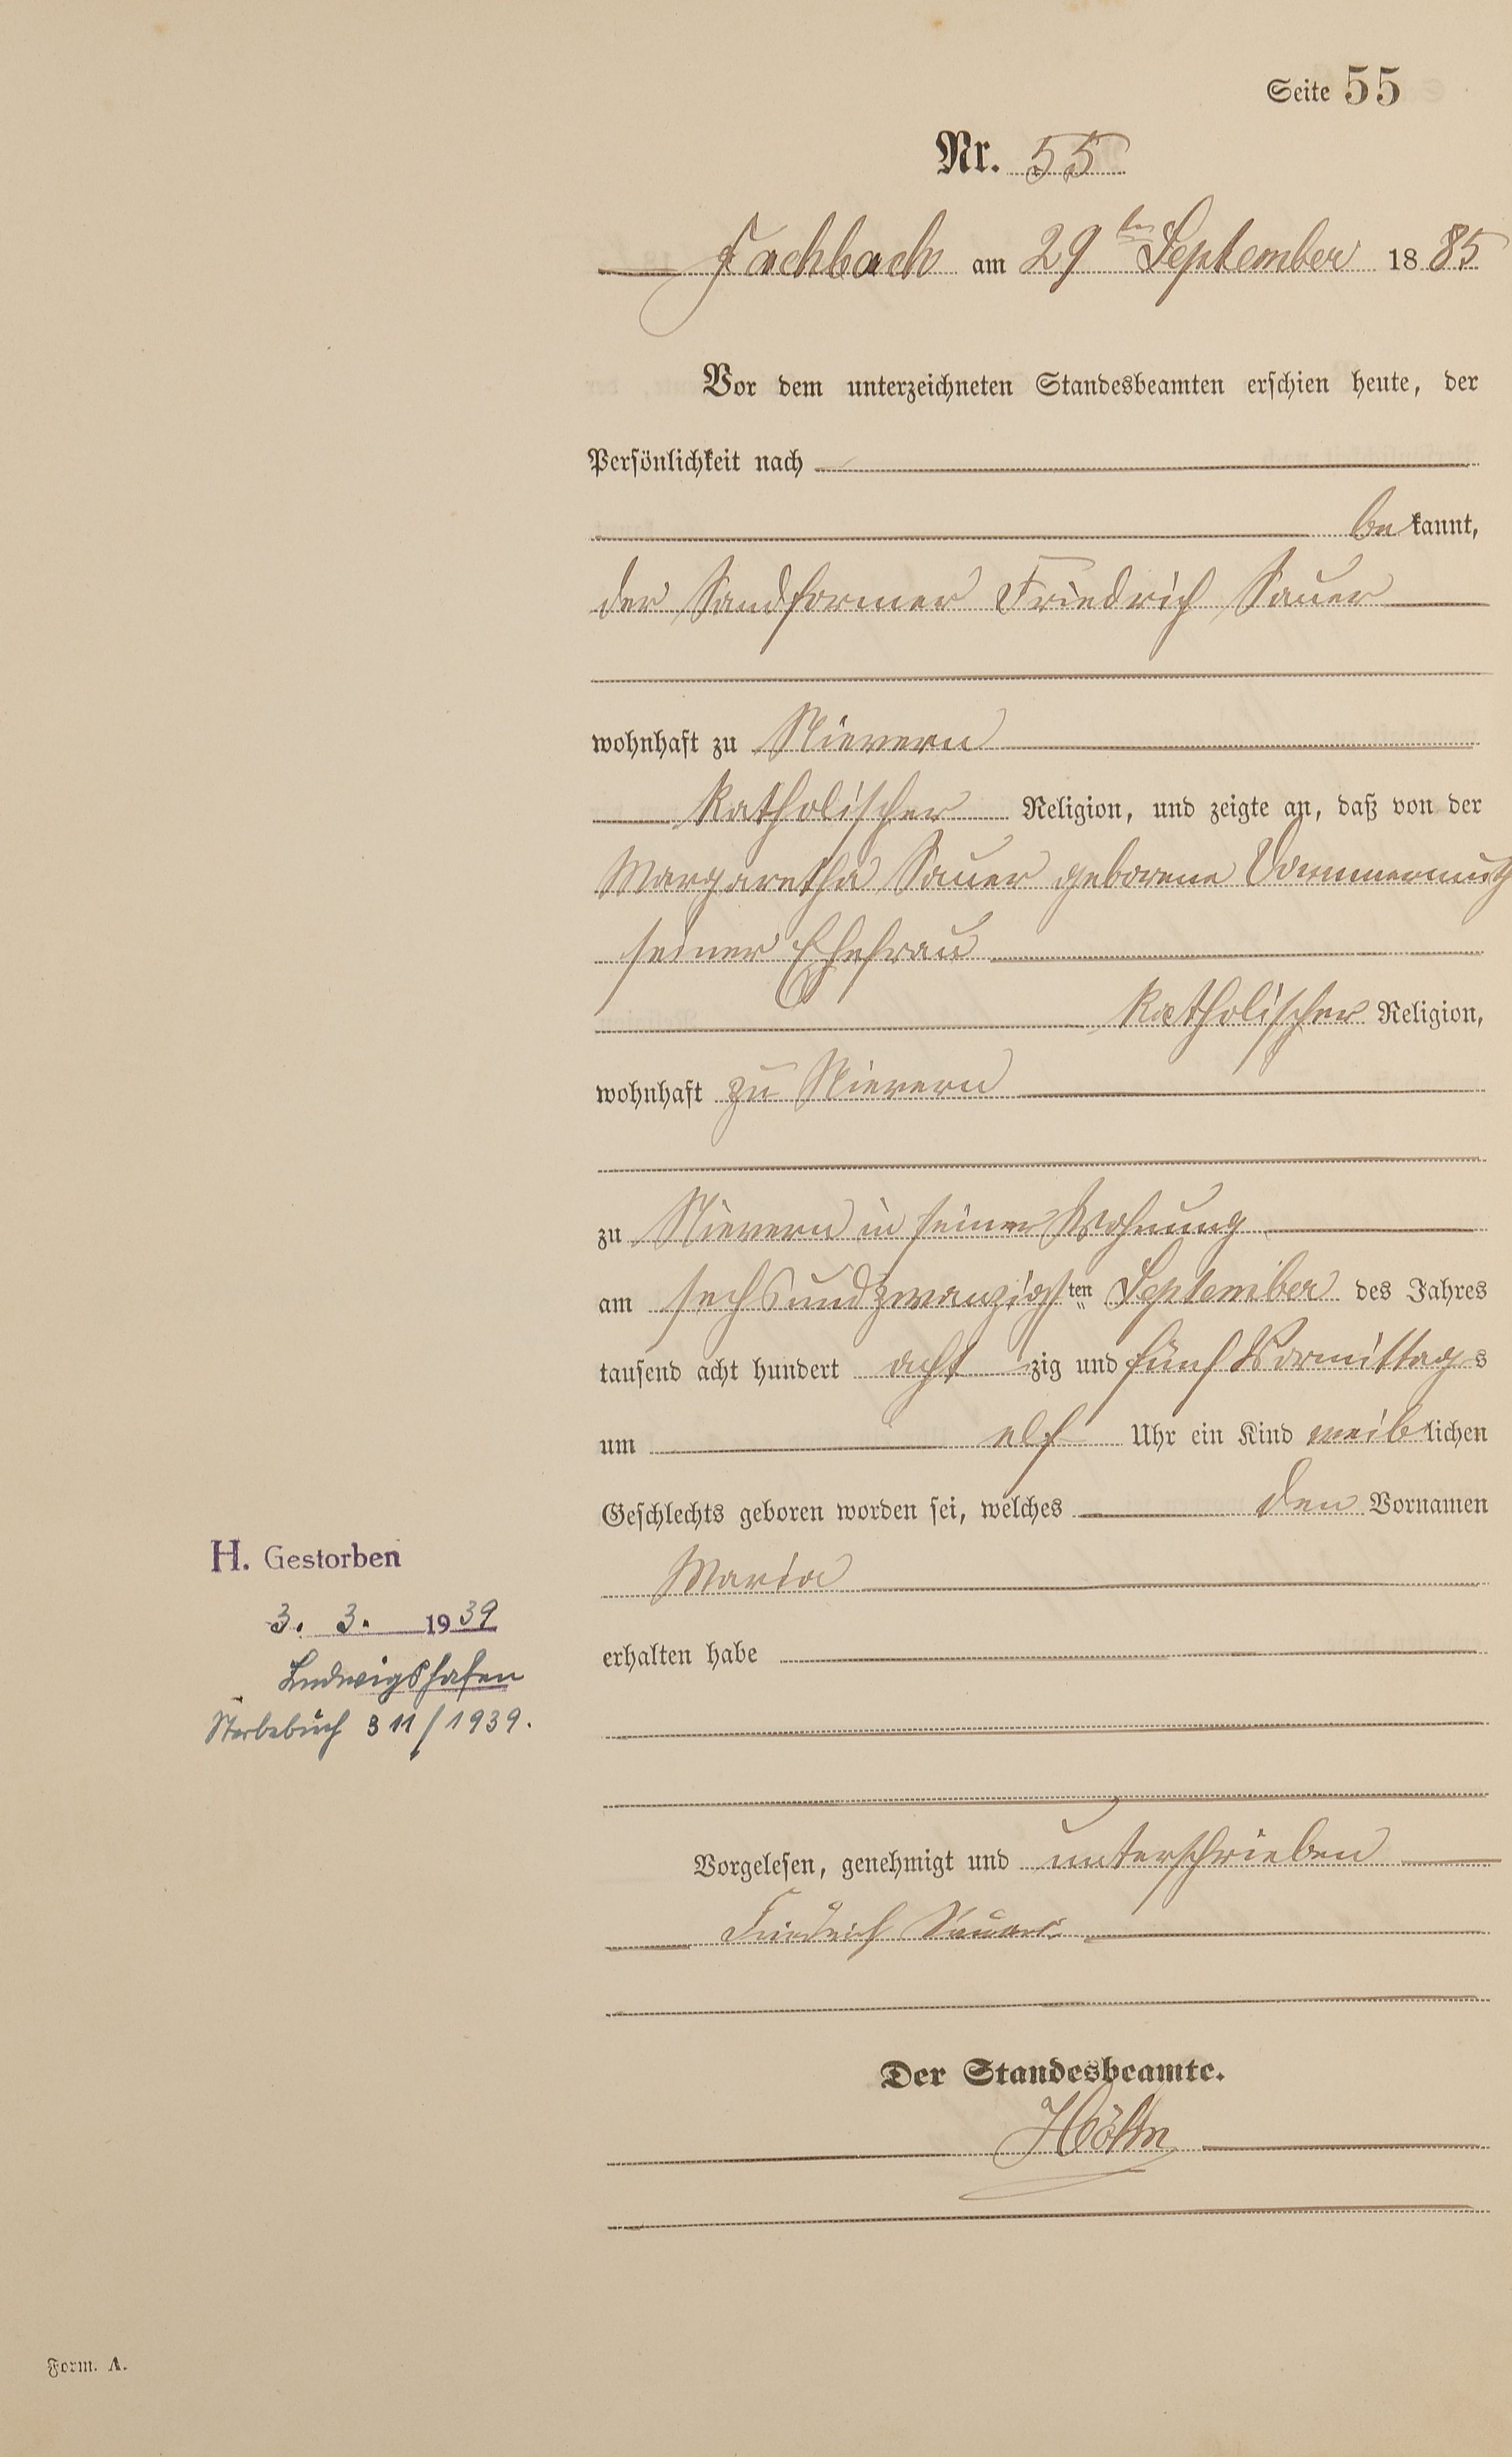 Seite 55
Nr. 55
Fachbach am 29ten September 1885
Vor dem unterzeichneten Standesbeamten erschien heute, der
Persönlichkeit nach
bekannt,
der Sandformer Friedrich Sauer
wohnhaft zu Nievern
katholischer Religion, und zeigte an, daß von der
Margaretha Sauer geborene
seiner Ehefrau
katholischer Religion,
wohnhaft zu Nievern
zu Nievern in seiner Wohnung
am sechsundzwanzigsten September des Jahres
tausend acht hundert achtzig und fünf Vormittags
um elf Uhr ein Kind weiblichen
Geschlechts geboren worden sei, welches den Vornamen
Maria
erhalten habe
H. Gestorben
3. 3. 1939
Ludwigshafen
Sterbebuch 311/1939.
Vorgelesen, genehmigt und unterschrieben
Friedrich Sauer
Der Standesbeamte.
Form. A.